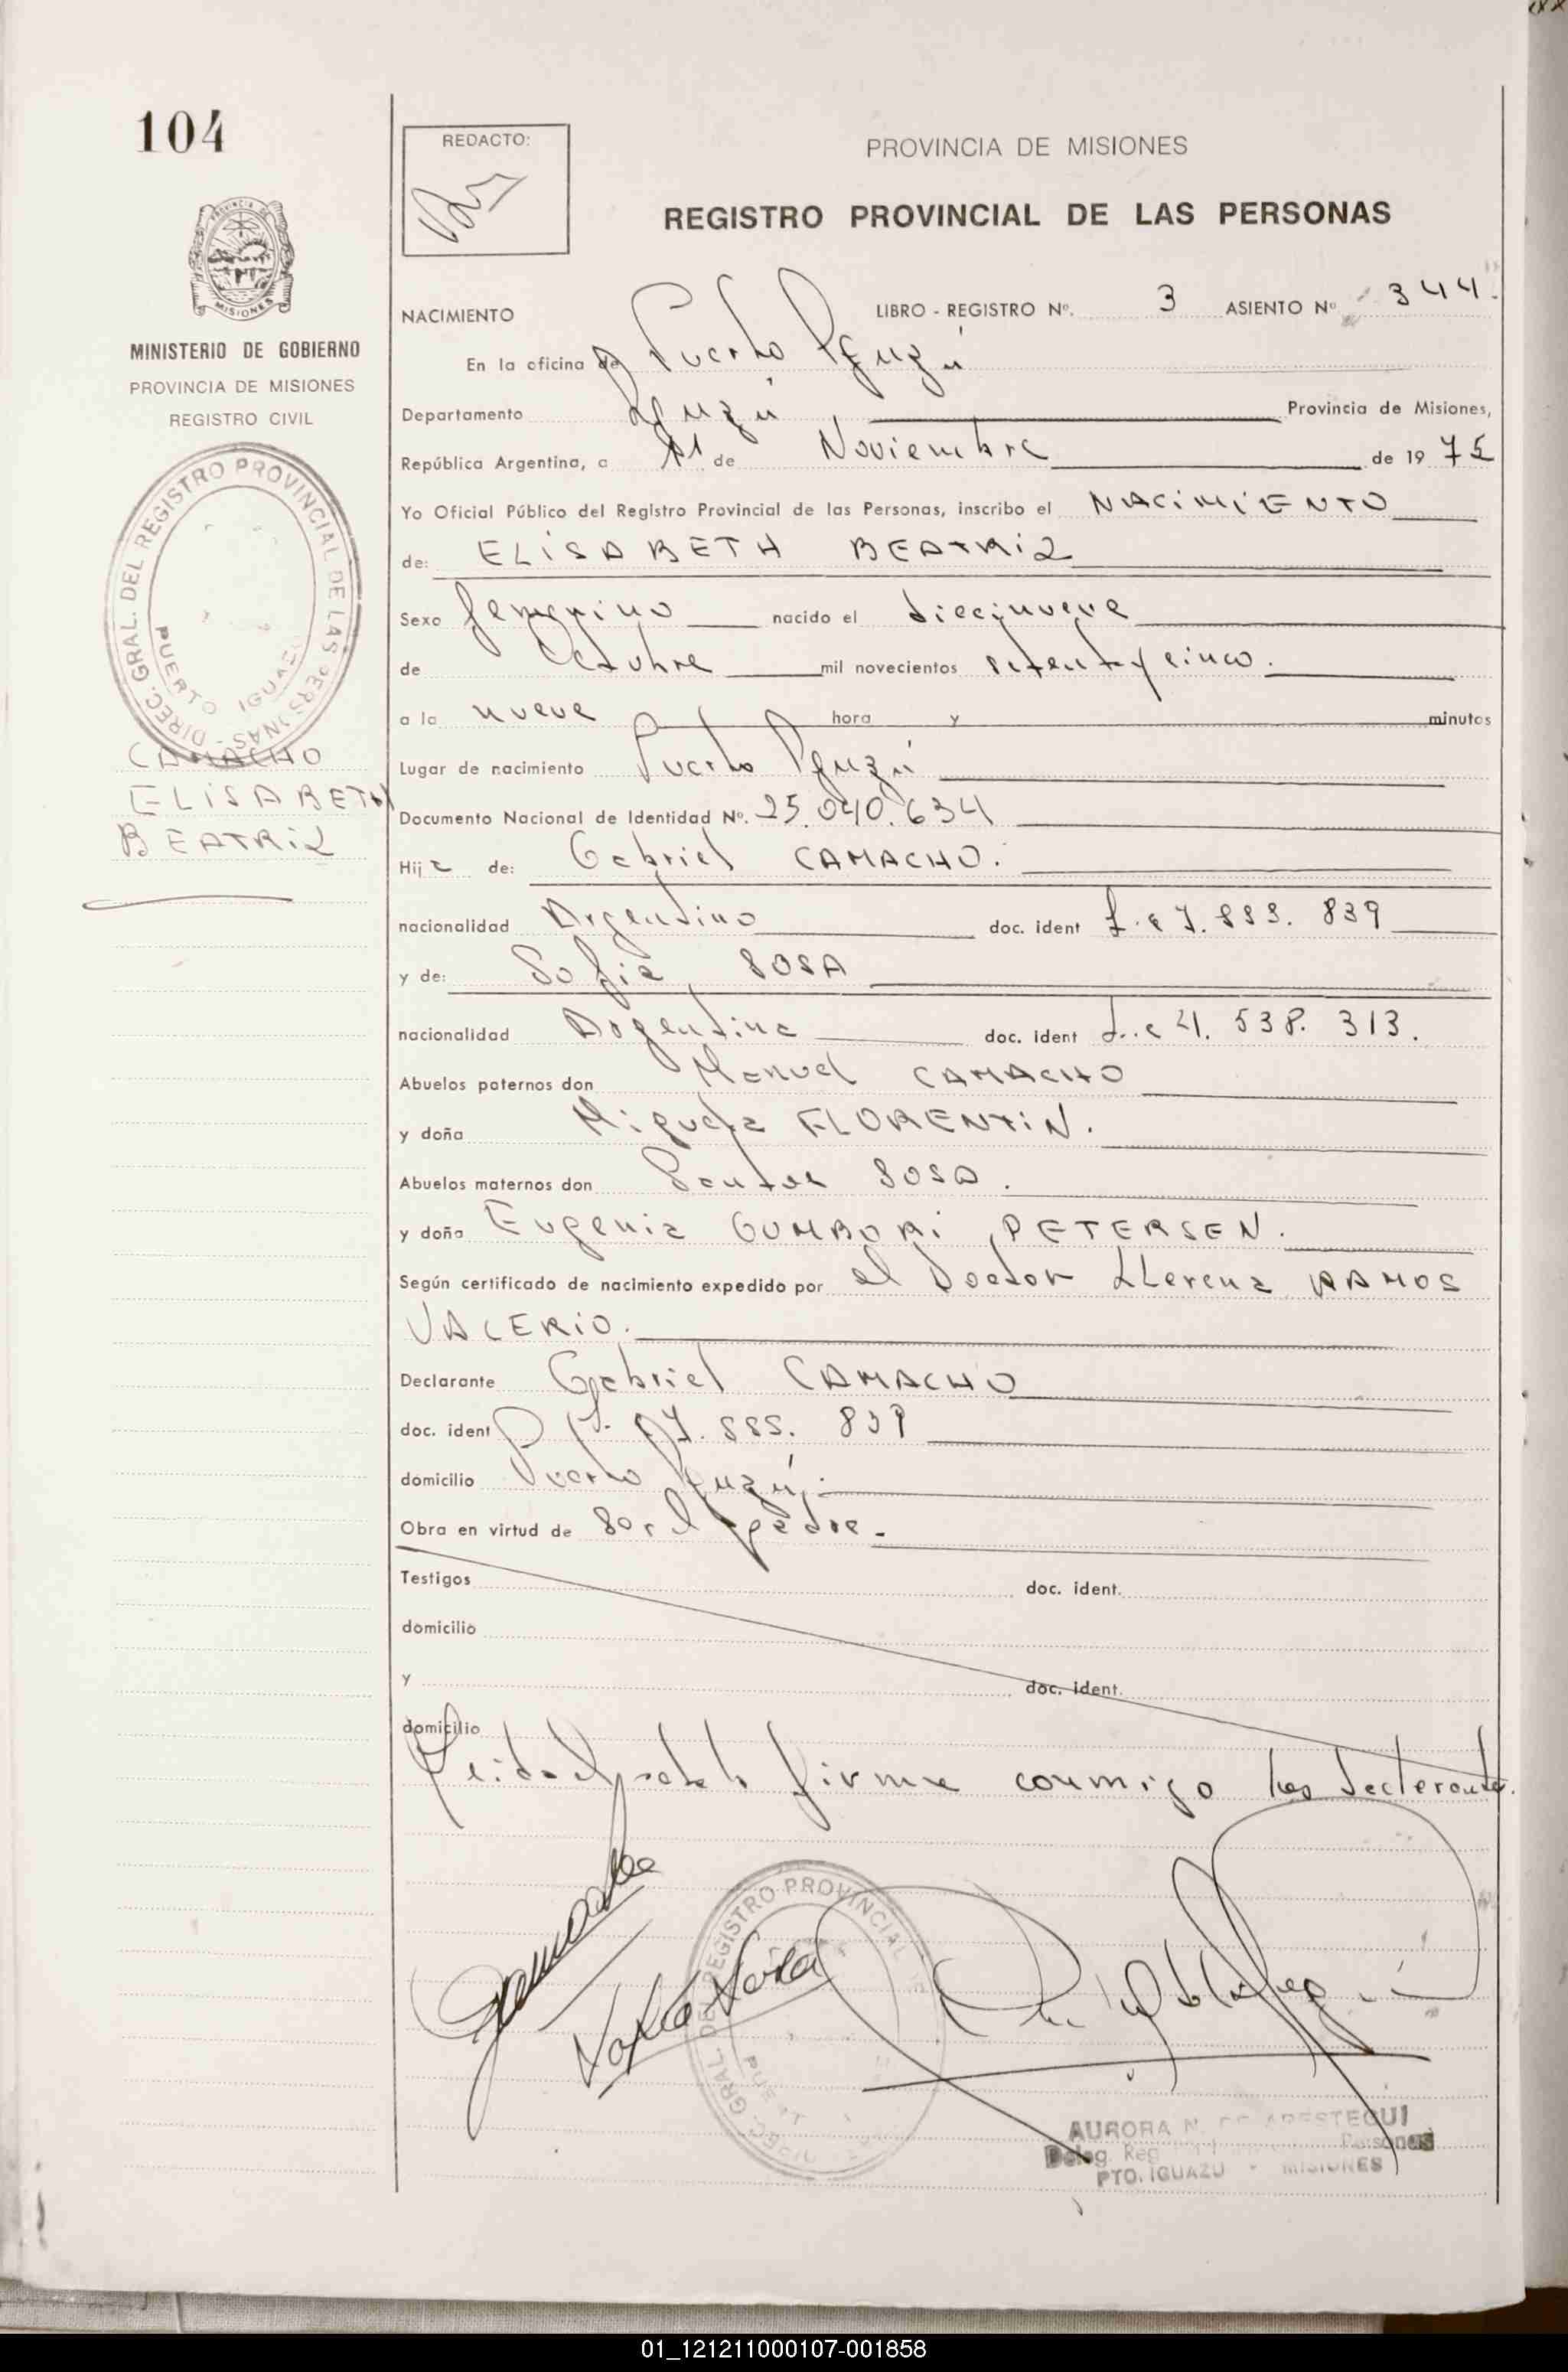 104
REDACTO:
PROVINCIA DE MISIONES
REGISTRO PROVINCIAL DE LAS PERSONAS
NACIMIENTO LIBRO - REGISTRO Nº. 3 ASIENTO Nº 344.
En la oficina de Puerto Iguazú
Departamento Iguazú Provincia de Misiones,
República Argentina, a de Noviembre de 1975
Yo Oficial Público del Registro Provincial de las Personas, inscribo el NACIMIENTO
de: ELISABETH BEATRIZ
Sexo femenino nacido el diecinueve
de Octubre mil novecientos setenta y cinco.
a la nueve hora y minutos
Lugar de nacimiento Puerto Iguazú
Documento Nacional de Identidad Nº. 25.040.634
Hija de: Gabriel CAMACHO.
nacionalidad Argentino doc. ident 839
y de: Sofia SOSA
nacionalidad Argentina doc. ident 538. 313.
Abuelos paternos don Manuel CAMACHO
y doña Miguela FLORENTIN.
Abuelos maternos don SOSA.
y doña Eugenia PETERSEN.
Según certificado de nacimiento expedido por el Doctor Llerena RAMOS
VALERIO.
Declarante Gabriel CAMACHO
doc. ident
domicilio Puerto Iguazú.
Obra en virtud de Ser el padre.
Testigos doc. ident.
domicilio
y doc. ident.
domicilio
Leida el acta la firma conmigo los declarante.
MISIONES
MINISTERIO DE GOBIERNO
PROVINCIA DE MISIONES
REGISTRO CIVIL
DIREC. GRAL. DEL REGISTRO PROVINCIAL DE LAS PERSONAS
PUERTO IGUAZU
CAMACHO
ELISABETH
BEATRIZ
DIREC. GRAL. DEL REGISTRO PROVINCIAL
AURORA N. DE ARESTEGUI
Deleg. Reg. Personas
PTO. IGUAZU - MISIONES
01_121211000107-001858